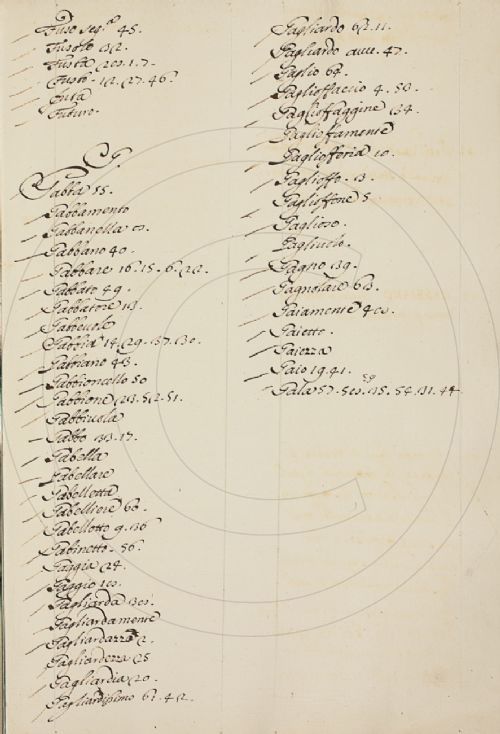 Fuso seg.o 45.
Fusotto 32.
Fusta
Fusto. 12. 27. 46.
Futa
Futuro.
G.
Gabba 55.
Gabbamento
Gabbanella
Gabbano 40.
Gabbare 16. 15. 6. 22.
Gabbato 49.
Gabbatore 113.
Gabbia 14. 29. 37. 30.
Gabbiano 43.
Gabbioncello 50
Gabbione 23. 52. 51.
Gabbiuola
Gabbo 33. 17.
Gabella
Gabellare
Gabelletta
Gabelliere 63.
Gabellotto 9. 136
Gabinetto. 56.
Gaggia 24.
Gaggio
Gagliarda
Gagliardamente
Gagliardezza 25
Gagliardia 20.
Gagliardissimo 62. 42.
Gagliardo 62. 11.
Gagliardo avve. 47.
Gaglio 64.
Gaglioffaccio 4. 50.
Gaglioffaggine 34.
Gaglioffamente
Gagliofferia 10.
Gaglioffo. 13.
Gaglioffone 5
Gaglioso.
Gagliuolo.
Gagno 39.
Gagnolare 63.
Gaiamente
Gaietto.
Gaiezza
Gaio 19. 41.
Gala 57. 35. 54. 31. 44.